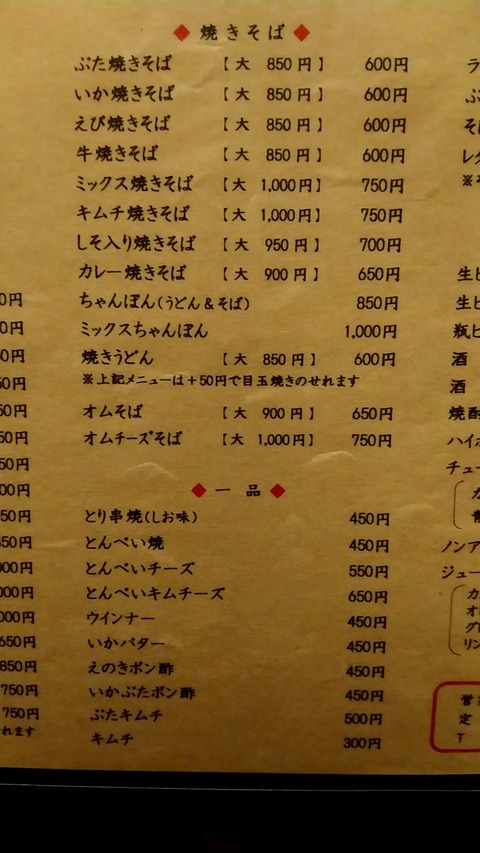 ◆ 焼きそば ◆
ぶた焼きそば 【大 850円】 600円
いか焼きそば 【大 850円】 600円
えび焼きそば 【大 850円】 600円
牛焼きそば 【大 850円】 600円
ミックス焼きそば 【大 1,000円】 750円
キムチ焼きそば 【大 1,000円】 750円
しそ入り焼きそば 【大 950円】 700円
カレー焼きそば 【大 900円】 650円
ちゃんぽん(うどん&そば) 850円
ミックスちゃんぽん 1,000円
焼きうどん 【大 850円】 600円
※上記メニューは+50円で目玉焼きのせれます
オムそば 【大 900円】 650円
オムチーズそば 【大 1,000円】 750円
◆ 一品 ◆
とり串焼(しお味) 450円
とんぺい焼 450円
とんぺいチーズ 550円
とんぺいキムチーズ 650円
ウインナー 450円
いかバター 450円
えのきポン酢 450円
いかぶたポン酢 450円
ぶたキムチ 500円
キムチ 300円
650円
850円
750円
750円
れます
酒
酒
焼酎
定
T